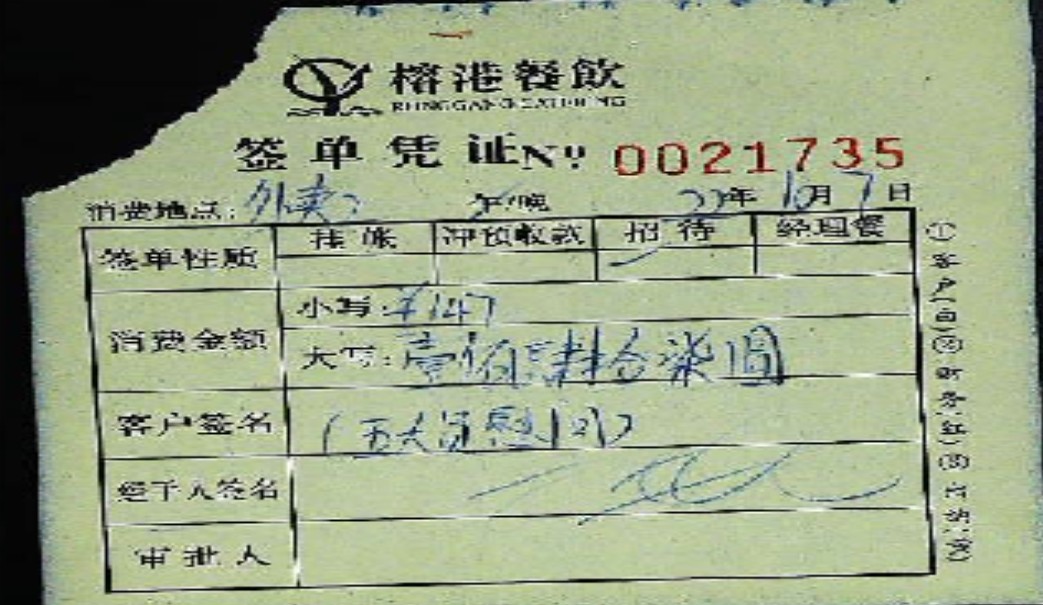 榕港餐飲
RONGGANG CATERING
签单凭证 Nº 0021735
消费地点: 外卖 午/晚 22年10月7日
签单性质 挂账 冲预收款 招待 经理餐
消费金额 小写: ¥147
大写: 壹佰肆拾柒圆
客户签名 (五大员慰问)
经手人签名
审批人
①客户(白)②财务(红)③